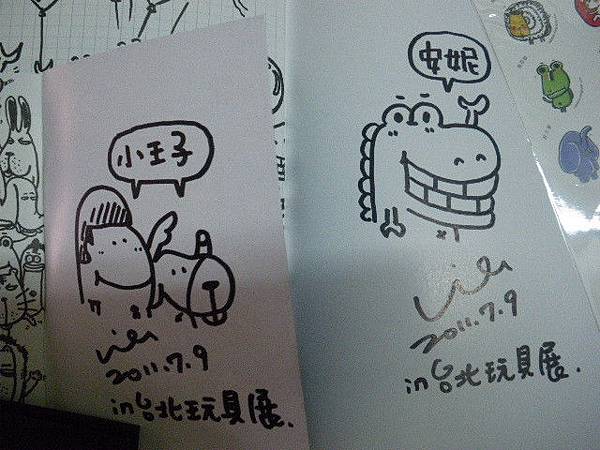 小王子
2011.7.9
in台北玩具展.
安妮
2011.7.9
in台北玩具展.